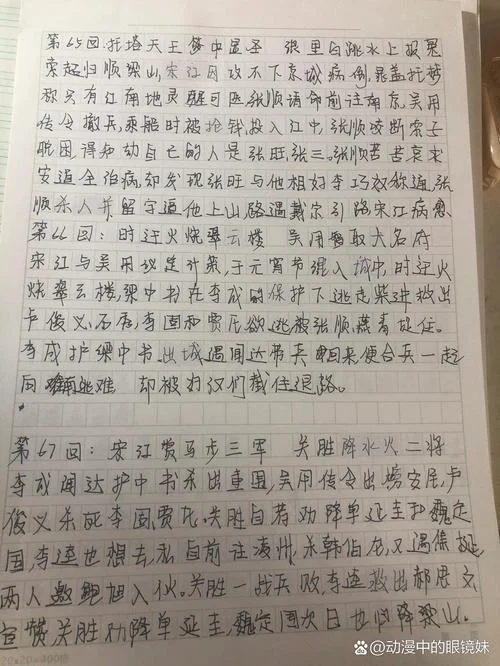 第65回:托塔天王梦中显圣 浪里白跳水上报冤
索超归顺梁山,宋江因攻不下京城病倒,晁盖托梦
称只有江南地灵醒可医,张顺请命前往南东,吴用
传令撤兵,乘船时被抢钱,投入江中,张顺咬断索子
脱困得知劫自己的人是张旺,张三。张顺苦苦哀求
安道全治病,却发现张旺与他相好李巧奴称道,张
顺杀人并留字逼他上山路遇戴宗引路宋江病愈
第66回:时迁火烧翠云楼 吴用智取大名府
宋江与吴用议定计策,于元宵节混入城中,时迁火
烧翠云楼,梁中书在李成的保护下逃走柴进救出
卢俊义、石秀,李固和贾氏欲逃被张顺燕青抓住。
李成护梁中书出城遇闻达带兵回来,便合兵一起
向南逃难 却被好汉们截住退路。
第67回:宋江赏马步三军 关胜降水火二将
李成闻达护中书杀出重围,吴用传令出榜安民,卢
俊义杀死李固贾氏,关胜自荐劝降单廷圭和魏定
国,李逵也想去,私自前往凌州,杀韩伯龙,又遇焦挺
两人邀鲍旭入伙。关胜一战兵败,李逵救出郝思文
宣赞关胜劝降单廷圭,魏定国次日也归降梁山。
20x20=400格
@动漫中的眼镜妹